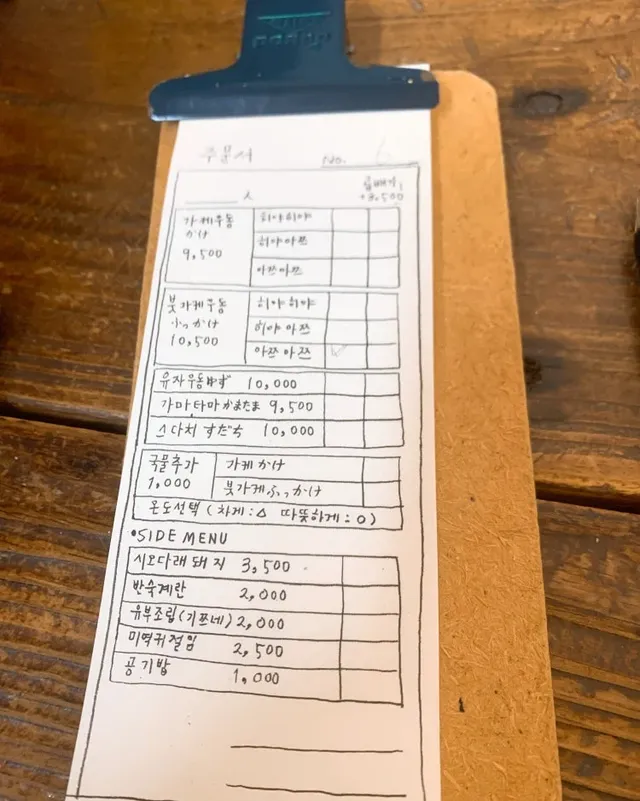 주문서 No. 6
人 곱빼기
+3,500
가케우동 히야히야
かけ 히야아쯔
9,500 아쯔아쯔
붓가케우동 히야히야
ぶっかけ 히야아쯔
10,500 아쯔아쯔
유자우동ゆず 10,000
가마타마かまたま 9,500
스다치 すだち 10,000
국물추가 가케 かけ
1,000 붓가케ぶっかけ
온도선택 (차게:△ 따뜻하게:O)
•SIDE MENU
시오다래돼지 3,500
반숙계란 2,000
유부조림(기쯔네) 2,000
미역귀절임 2,500
공기밥 1,000